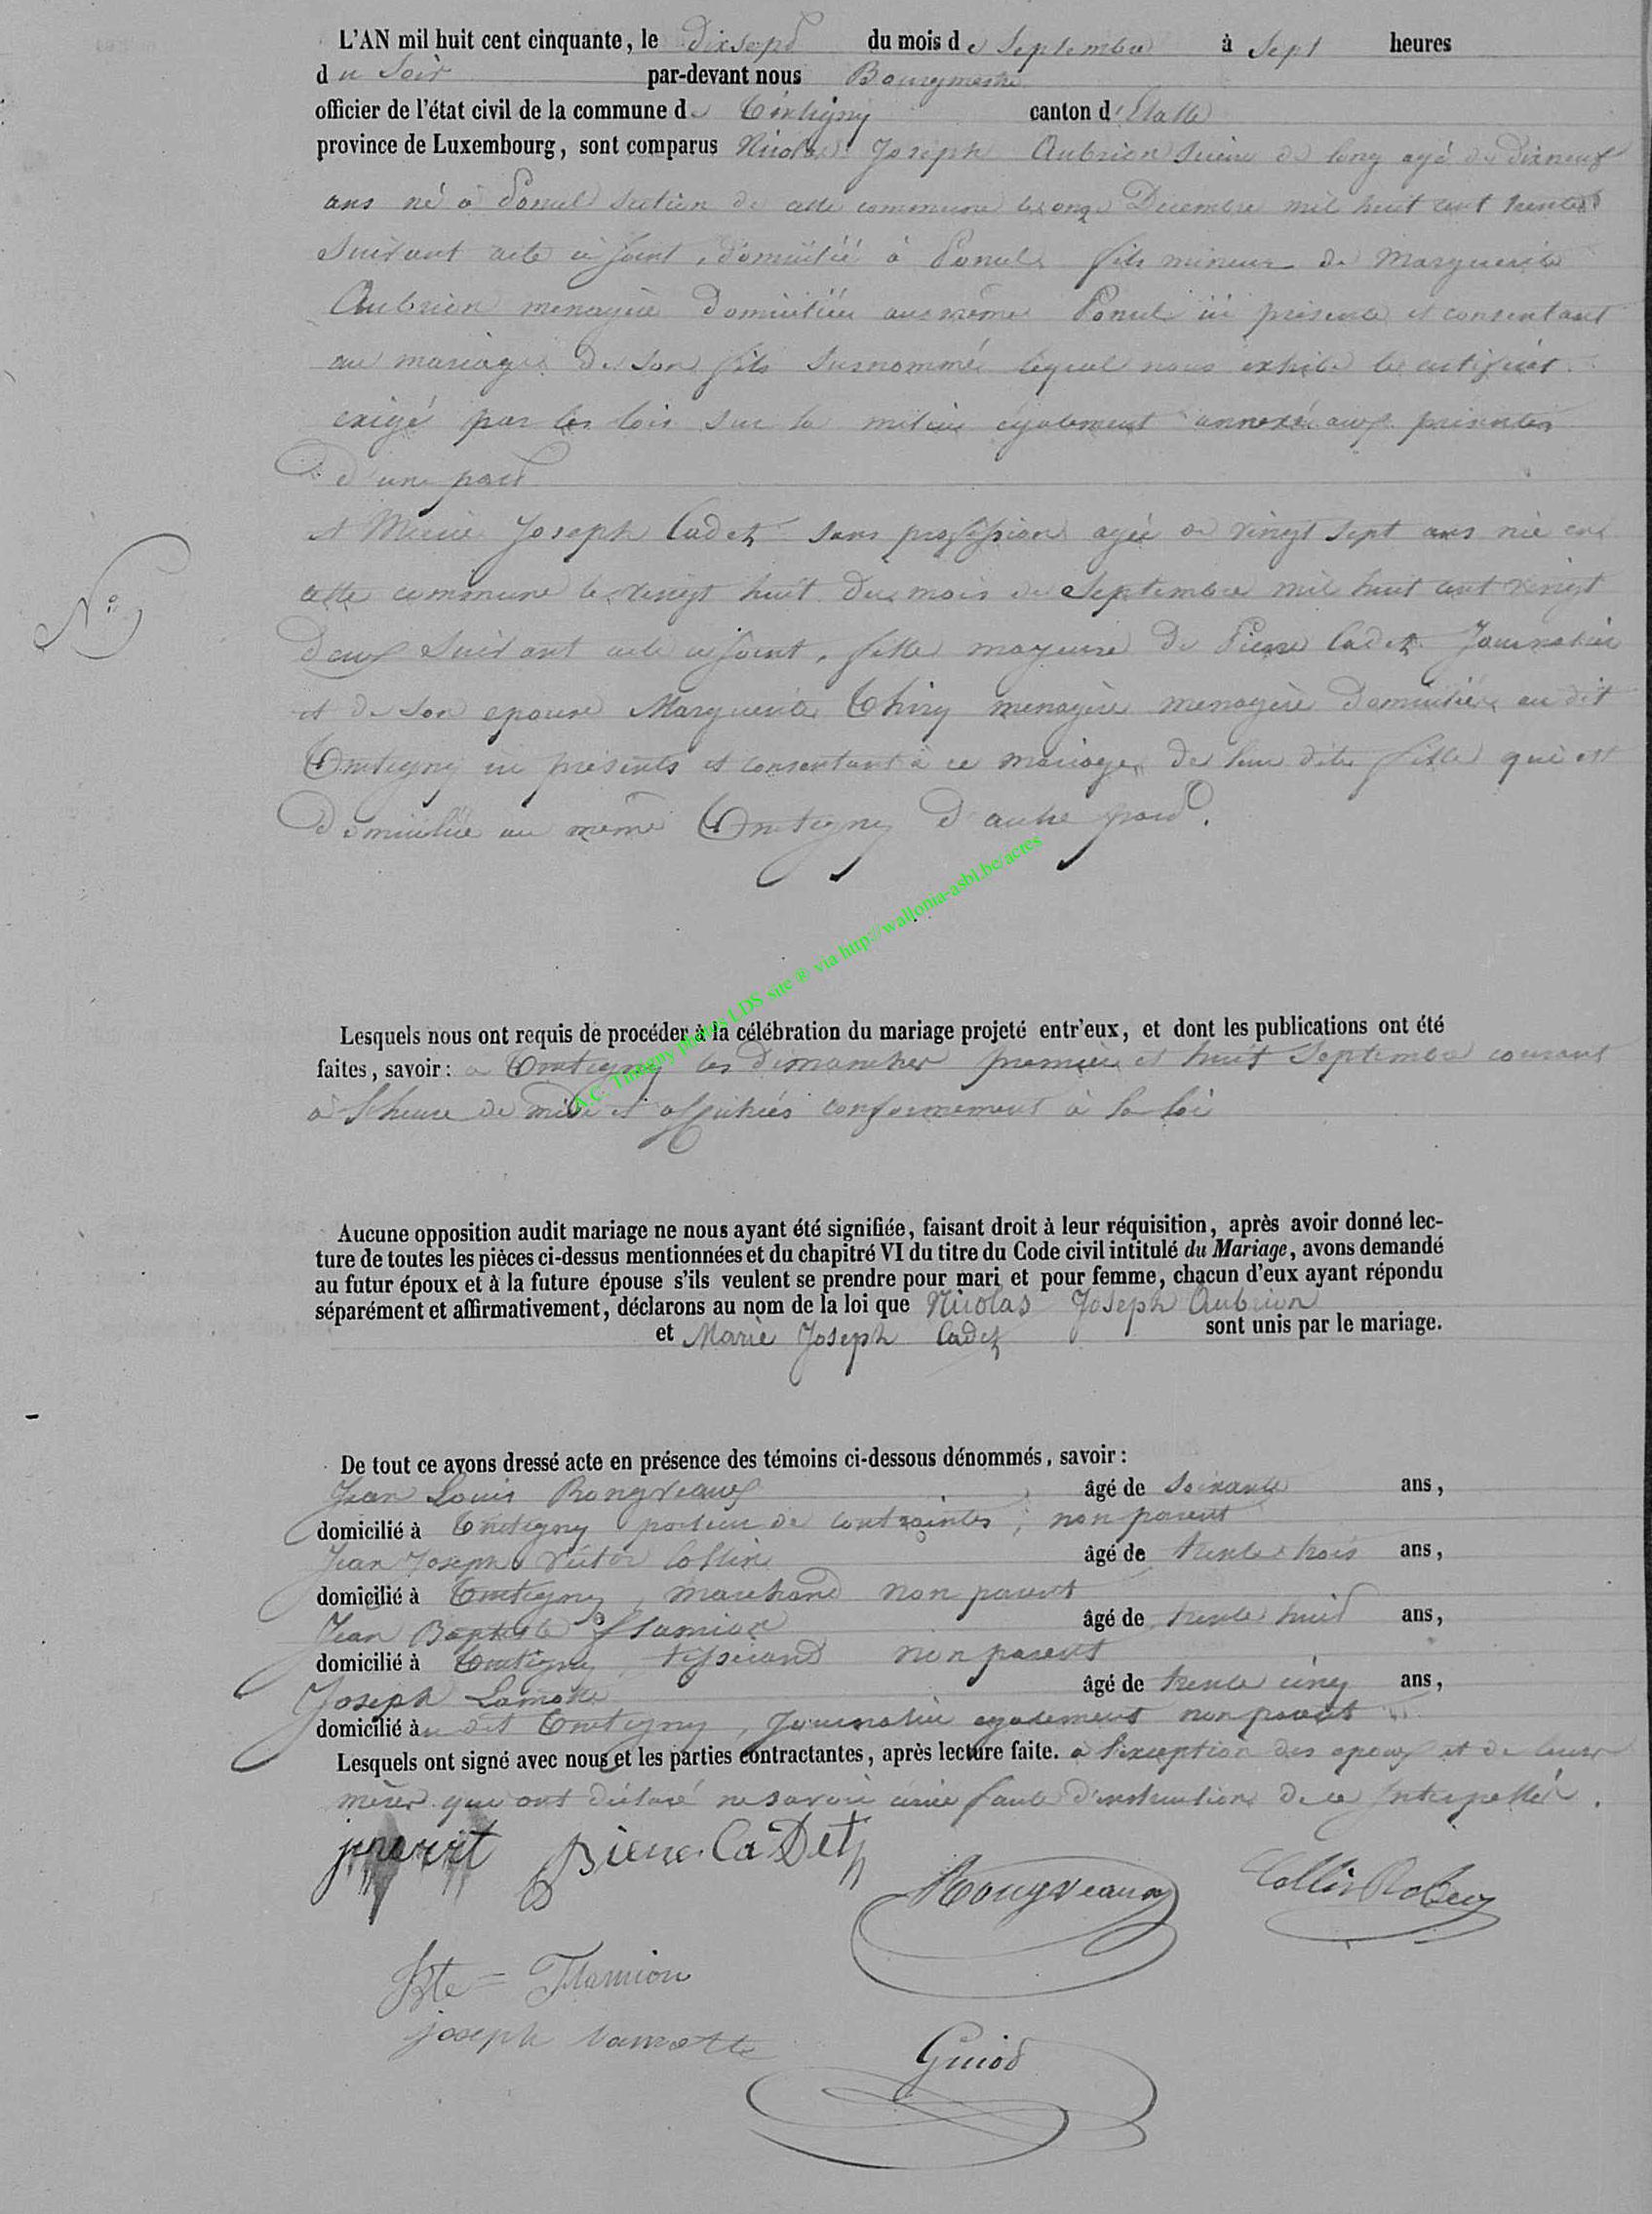 L'AN mil huit cent cinquante, le dixsept du mois de Septembre à Sept heures
du Soir par-devant nous Bourgmestre
officier de l'état civil de la commune de Tintigny canton d'Etalle
province de Luxembourg, sont comparus Nicolas Joseph Aubrion Scieur de long agé de dixneuf
ans né à Ponsel Section de cette commune le onze Decembre mil huit cent trente
Suivant acte ci joint, domicilié à fils mineur de Marguerite
Aubrion menagère domiciliée au même ici présente et consentant
au mariage de son fils surnommé lequel nous exhibe le certificat
exigé par les lois sur la milice également annexé aux présentes
d'une part
et Marie Joseph Cadet sans profession agée de vingt sept ans née en
cette commune le vingt huit du mois de Septembre mil huit cent vingt
deux Suivant acte ci joint, fille majeure de Pierre Cadet Journalier
et de son epouse Marguerite Thiry menagère menagère domiciliés au dit
Tintigny ici présents et consentant à ce mariage de leur dite fille qui est
domiciliée au même Tintigny d'autre part.
N°
Lesquels nous ont requis de procéder à la célébration du mariage projeté entr'eux, et dont les publications ont été
faites, savoir : à Tintigny les dimanches premier et huit Septembre courant
à l'heure de midi et affichées conformement à la loi
A.C. Tintigny photos LDS site ® via http://wallonia-asbl.be/actes
Aucune opposition audit mariage ne nous ayant été signifiée, faisant droit à leur réquisition, après avoir donné lec-
ture de toutes les pièces ci-dessus mentionnées et du chapitré VI du titre du Code civil intitulé du Mariage, avons demandé
au futur époux et à la future épouse s'ils veulent se prendre pour mari et pour femme, chacun d'eux ayant répondu
séparément et affirmativement, déclarons au nom de la loi que Nicolas Joseph Aubrion
et Marie Joseph Cadet sont unis par le mariage.
De tout ce avons dressé acte en présence des témoins ci-dessous dénommés, savoir :
Jean Louis Rongveaux âgé de Soixante ans,
domicilié à Tintigny porteur de contraintes, non parent
Jean Joseph Victor Collin âgé de trente trois ans,
domicilié à Tintigny, marchand non parent
Jean Baptiste flamion âgé de trente huit ans,
domicilié à Tintigny, tisserand non parent
Joseph Lamotte âgé de trente cinq ans,
domicilié à u dit Tintigny, Journalier egalement non parent
Lesquels ont signé avec nous et les parties contractantes, après lecture faite. à l'exception des epoux et de leurs
mères qui ont déclaré ne savoir écrire faute d'instruction de ce Interpellés.
Pierre CaDet
Rongveaux
Collin
Bte = Flamion
joseph lamotte
Guiot